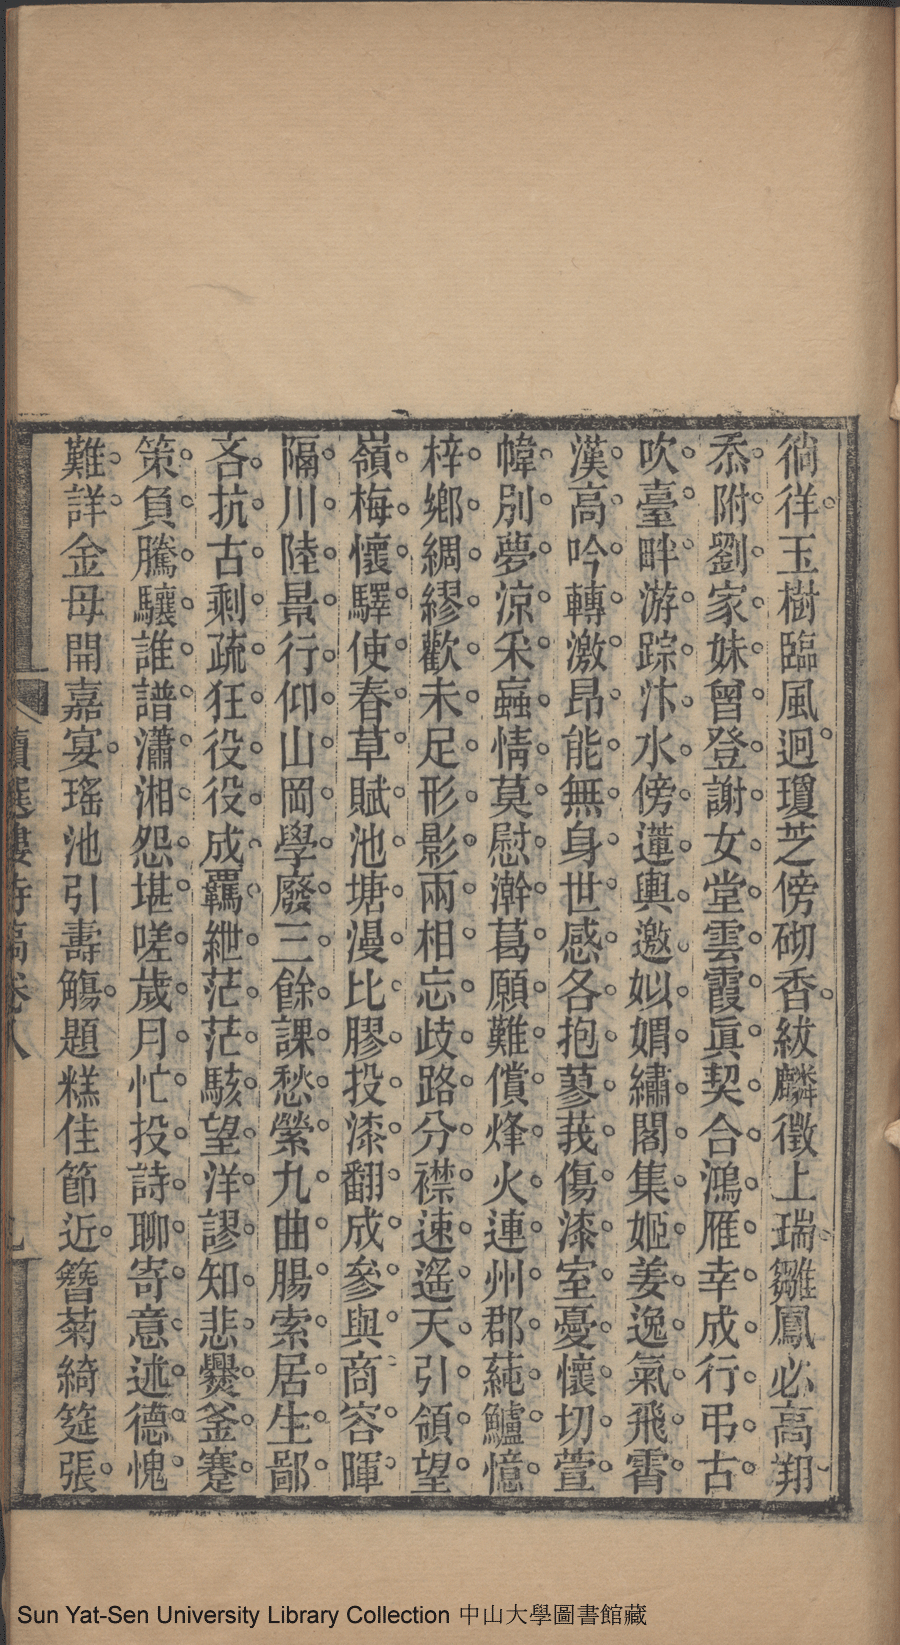 徜徉玉樹臨風迥瓊芝傍砌香紱麟徵上瑞雛鳳必高翔
忝附劉家妹曾登謝女堂雲霞眞契合鴻雁幸成行弔古
吹臺畔游踪汴水傍蓮輿邀姒媦繡閣集姬姜逸氣飛霄
漢高吟轉激昂能無身世感各抱蓼莪傷漆室憂懷切萱
幃別夢涼采蟲情莫慰澣葛願難償烽火連州郡蒓鱸憶
梓鄉綢繆歡未足形影兩相忘歧路分襟速遙天引領望
嶺梅懷驛使春草賦池塘漫比膠投漆翻成參與商容暉
隔川陸景行仰山岡學廢三餘課愁縈九曲腸索居生鄙
吝抗古剩疏狂役役成羈紲茫茫駭望洋謬知悲爨釜蹇
策負騰驤誰譜瀟湘怨堪嗟歲月忙投詩聊寄意述德愧
難詳金母開嘉宴瑤池引壽觴題糕佳節近簪菊綺筵張
讀選樓詩稿卷八
Sun Yat-Sen University Library Collection 中山大學圖書館藏